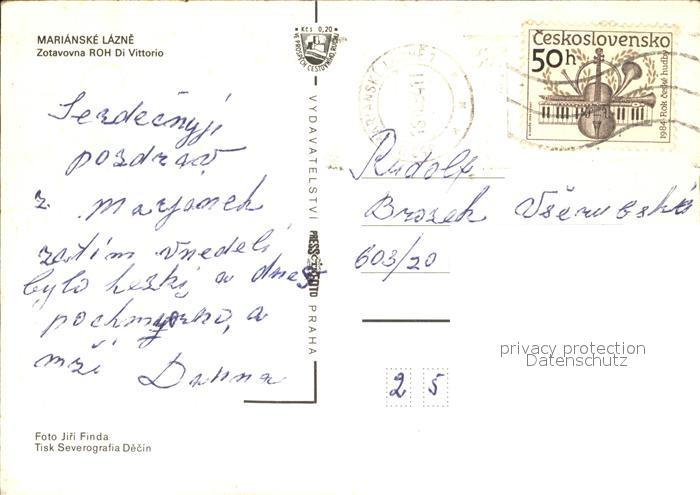 MARIÁNSKÉ LÁZNĚ
Zotavovna ROH Di Vittorio
Kčs 0,20
VE PROSPĚCH CESTOVNÍHO RUCHU
Československo
50h
1984 Rok české hudby
Serdečnyji
pozdrav
z Marjanek
zatím vnedeli
bylo hezki a dnes
pochmurno, a
mží Danna
VYDAVATELSTVÍ PRESSFOTO PRAHA
Rudolf
Brozek Všerubská
603/20
25
privacy protection
Datenschutz
Foto Jiří Finda
Tisk Severografia Děčín